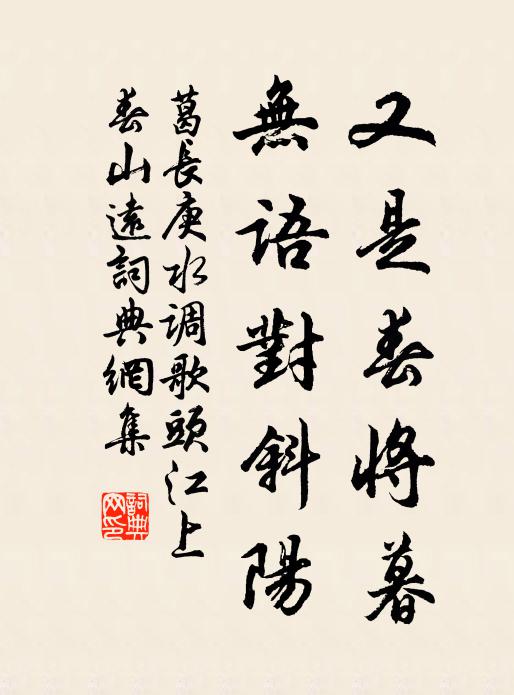 又是春將暮
無語對斜陽
葛長庚水调歌頭江上
春山遠詞典網集
詞典
网印